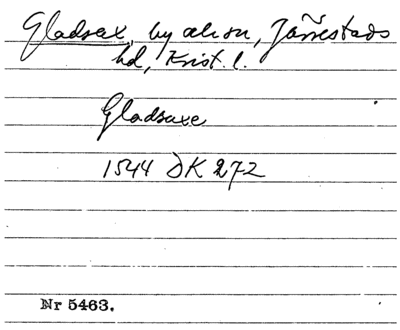 Gladsax, by o. kson, Järrestads
hd, Krist. l.
Gladsaxe
1544 DK 272
Nr 5463.